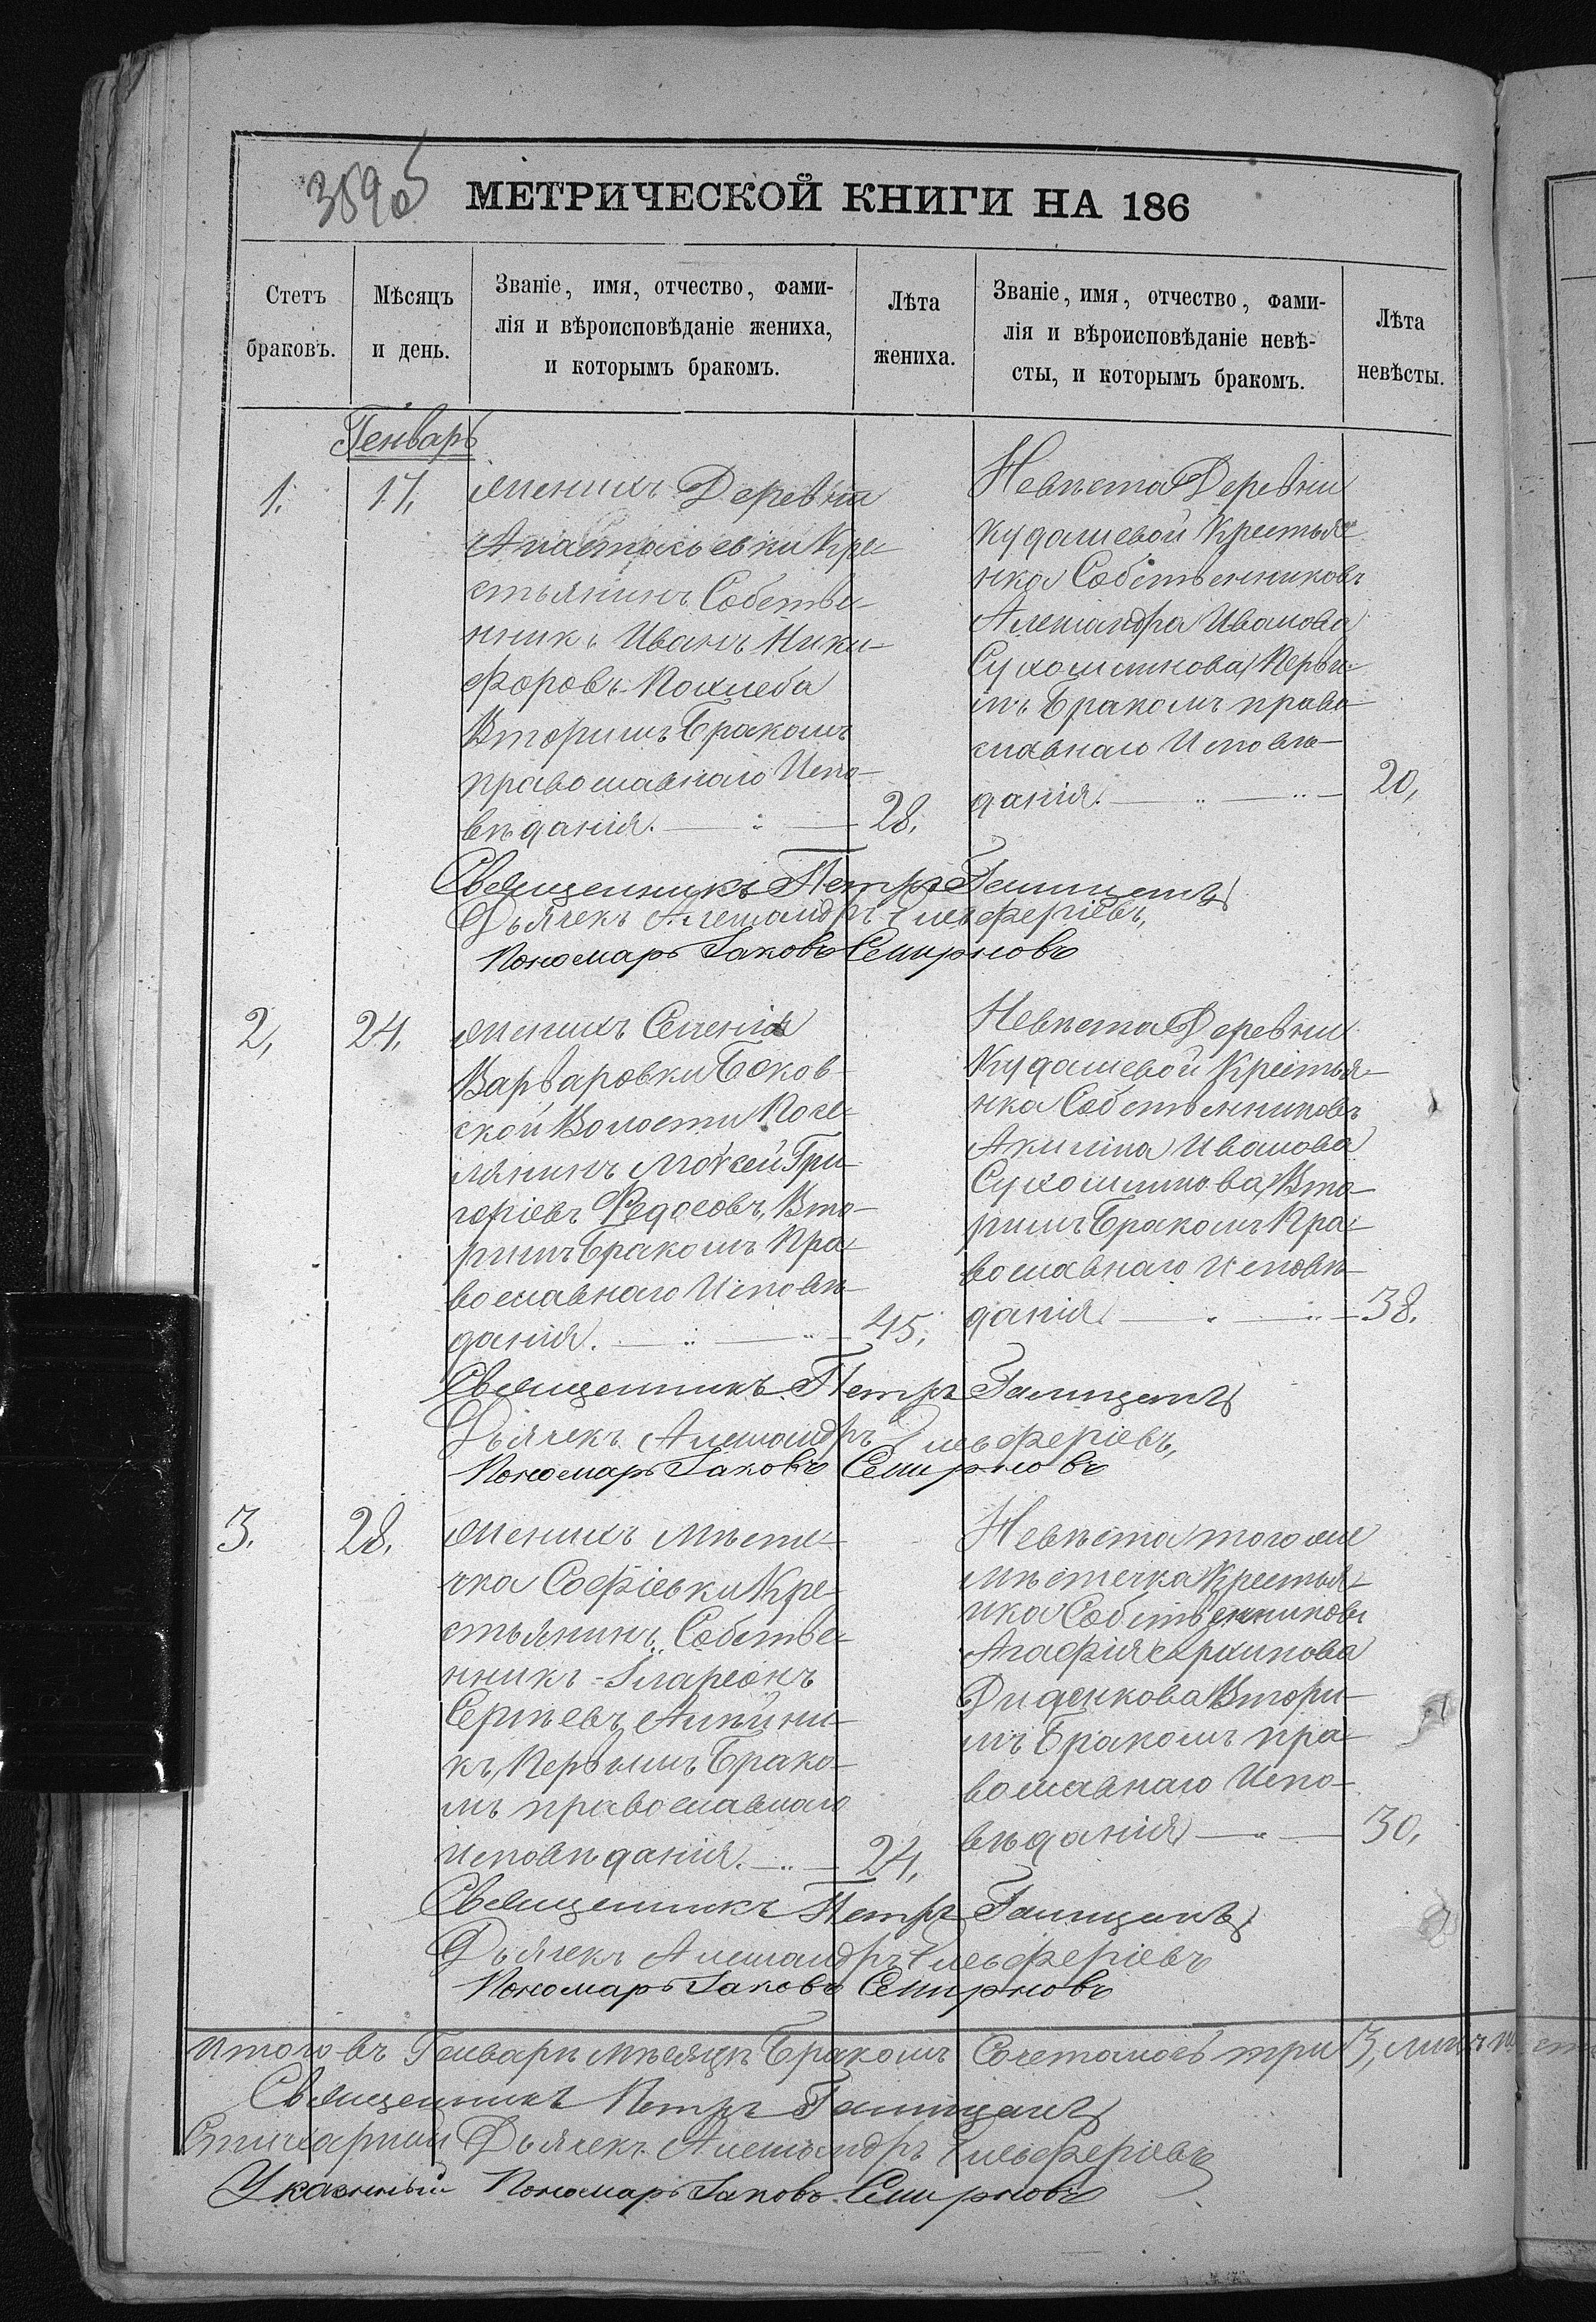 359об
МЕТРИЧЕСКОЙ КНИГИ НА 186
Счетъ браковъ.
Мѣсяцъ и день.
Званіе, имя, отчество, фами-
лія и вѣроисповѣданіе жениха,
и которымъ бракомъ.
Лѣта жениха.
Званіе, имя, отчество, фами-
лія и вѣроисповѣданіе невѣ-
сты, и которымъ бракомъ.
Лѣта невѣсты.
Генварь
1. 17.
Женихъ Деревни
Анастасьевки Кре-
стьянинъ Собстве-
нникъ Иванъ Ники-
форовъ Похлеба
Вторимъ Бракомъ
православнаго Испо-
вѣданія. 28.
Невѣста Деревни
Кудашевой Крестья-
нка Собственниковъ
Александра Иванова
Сухошлинова Первы-
мъ Бракомъ право-
славнаго Исповѣ-
данія. 20,
Священникъ Петръ
Дьячекъ Александръ Елефферіевъ,
Пономарь Іаковъ Смирновъ
2, 24.
Женихъ Селенія
Варваровки Боков-
ской Волости Посе-
лянинъ Моѵсей Гри-
горіевъ Федосовъ, Вто-
римъ Бракомъ Пра-
вославнаго Исповѣ-
данія. 45.
Невѣста Деревни
Кудашевой Крестья-
нка Собственниковъ
Акилина Иванова
Сухошлинова, Вто-
римъ Бракомъ Пра-
вославнаго Исповѣ-
данія 38.
Священникъ Петръ
Дьячекъ Александръ Елефферіевъ,
Пономарь Іаковъ Смирновъ
3. 28.
Женихъ Мѣсте-
чка Софіевки Кре-
стьянинъ Собстве-
нникъ Іларіонъ
Сергѣевъ Алѣйни-
къ, Первымъ Брако-
мъ православнаго
Исповѣданія. 24,
Невѣста того же
Мѣстечка Крестья-
нка Собственниковъ
Агафія Архипова
Диденкова Втори-
мъ Бракомъ пра-
вославнаго Испо-
вѣданія 30,
Священникъ Петръ
Дьячекъ Александръ Елефферіевъ
Пономарь Іаковъ Смирновъ
Итого въ Генварѣ мѣсяцѣ Бракомъ Сочеталось три 3,
Священникъ Петръ
Стихарный Дьячекъ Александръ Елефферіевъ
Указнный Пономарь Іаковъ Смирновъ